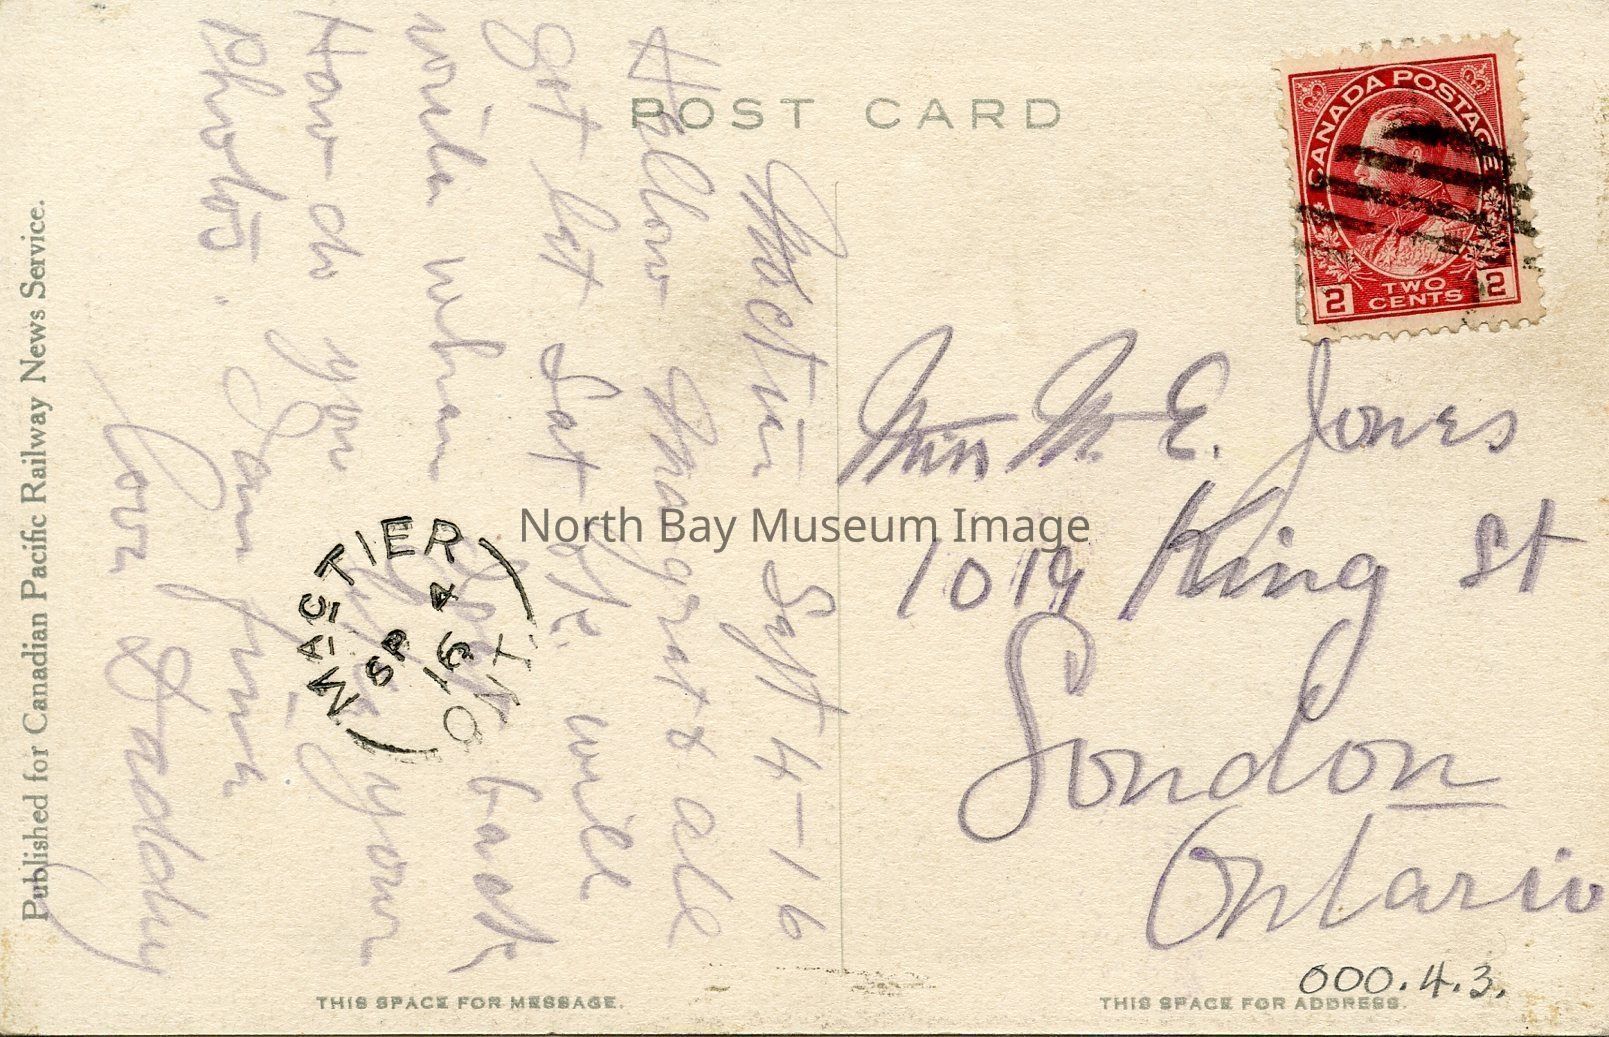 POST CARD
CANADA POSTAGE
2 TWO CENTS 2
Mactier Sept 4-16
Hellow Margrat & all
got hat Sat ok. will
write when I get back
How do you like your
Photo's. I am fine
love Daddy
MACTIER
SP 4
16
ONT.
Miss M. E. Jones
1019 King St
London
Ontario
000.4.3.
North Bay Museum Image
Published for Canadian Pacific Railway News Service.
THIS SPACE FOR MESSAGE.
THIS SPACE FOR ADDRESS.